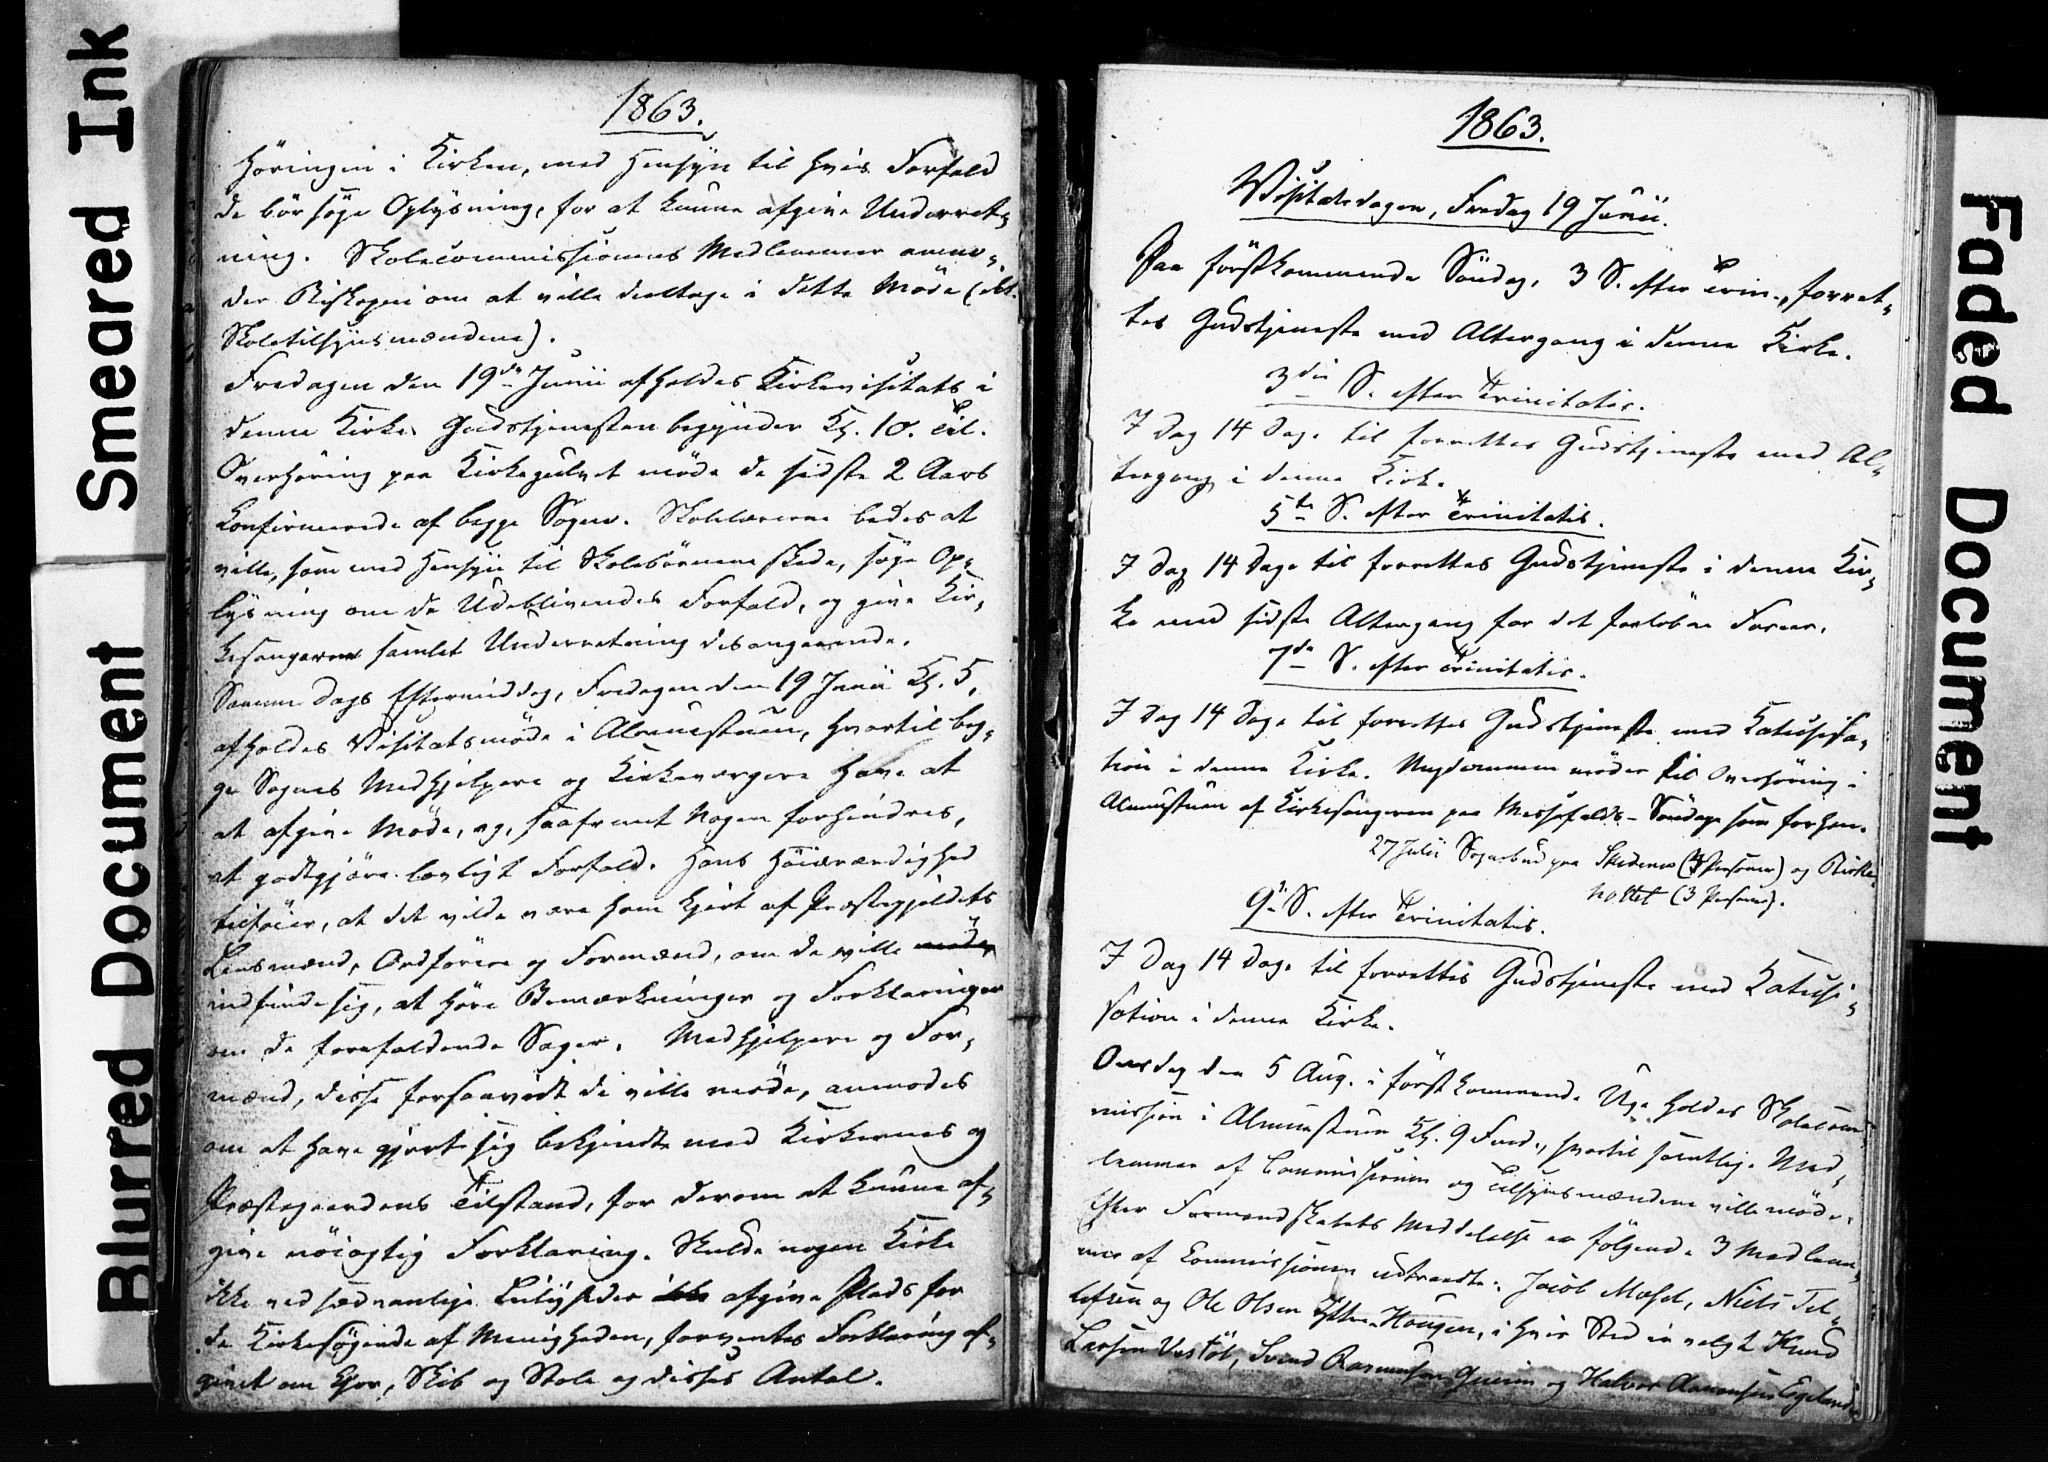 1863.
Höringen i Kirken, med Hensyn til hvis Forfald
de bör söge Oplysning, for at kunne afgive Underret-
ning. Skolecommissionens Medlemmer anmo-
der Biskopen om at ville deeltage i dette Möde (
Skoletilsynsmændene).
Fredagen den 19de Junii afholdes Kirkevisitats i
denne Kirke. Gudstjenesten begynder Kl. 10. Til
Overhöring paa Kirkegulvet möde de sidste 2 Aars
Confirmerede af begge Sogne. Skolelærerne bedes at
ville, som med Hensyn til Skolebörnene skede, söge Op-
lysning om de Udeblivendes Forfald, og give Kir-
kesangeren samlet Underretning desangaaende.
Samme Dags Eftermiddag, Fredagen den 19 Junii Kl. 5,
afholdes Visitatsmöde i Almuestuen, hvortil beg-
ge Sognes Medhjelpere og Kirkeværgere have at
at afgive Möde, og, saafremt Nogen forhindres,
at godtgjöre lovligt Forfald. Hans Höiærværdighed
tilföier, at det vilde være ham kjert af Præstegjeldets
Lensmænd, Ordförere og Formænd, om de ville möde
indfinde sig, at höre Bemærkninger og Forklaringer
om de forefaldende Sager. Medhjelpere og For-
mænd, disse forsaavidt de ville möde, anmodes
om at have gjort sig bekjendte med Kirkernes og
Præstegaardens Tilstand, for derom at kunne af-
give nöiagtig Forklaring. Skulde nogen Kirke
ikke ved sædvanlige Leiligheder afgive Plads for
de Kirkesögende af Menigheden, forventes Forklaring af-
givet om Chor, Skib og Stole og disses Antal.
1863.
Visitatsdagen, Fredag 19 Junii.
Paa förstkommende Söndag, 3 S. efter Trin., forret-
tes Gudstjeneste med Altergang i denne Kirke.
3die S. efter Trinitatis.
I Dag 14 Dage til forrettes Gudstjeneste med Al-
tergang i denne Kirke
5te S. efter Trinitatis.
I Dag 14 Dage til forrettes Gudstjeneste i denne Kir-
ke med sidste Altergang for det forlöbne Foraar.
7de S. efter Trinitatis.
I Dag 14 Dage til forrettes Gudstjeneste med Katechisa-
tion i denne Kirke. Ungdommen möder til Overhöring i
Almuestuen af Kirkesangeren paa Messefalds-Söndage som forhen.
27 Julii Sognebud paa (4 Personer) og Birke-
holtet (3 Personer).
9de S. efter Trinitatis.
I Dag 14 Dage til forrettes Gudstjeneste med Katechi-
sation i denne Kirke.
Onsdag den 5 Aug. i förstkommende Uge holdes Skolecom-
mission i Almuestuen Kl. 9 Form., hvortil samtlige Med-
lemmer af Commissionen og Tilsynsmændene ville möde.
Efter Formandskabets Meddelelse er fölgende 3 Medlem-
mer af Commissionen udtraadte: Jacob Mosel, Niels Tel-
lefsen og Ole Olsen Ytter-Haugen, i hvis Sted er valgt Knud
Larsen Vestöl, Svend Rasmussen og Halvor Aanonsen Egeland.
Smeared Ink
Blurred Document
Faded Document